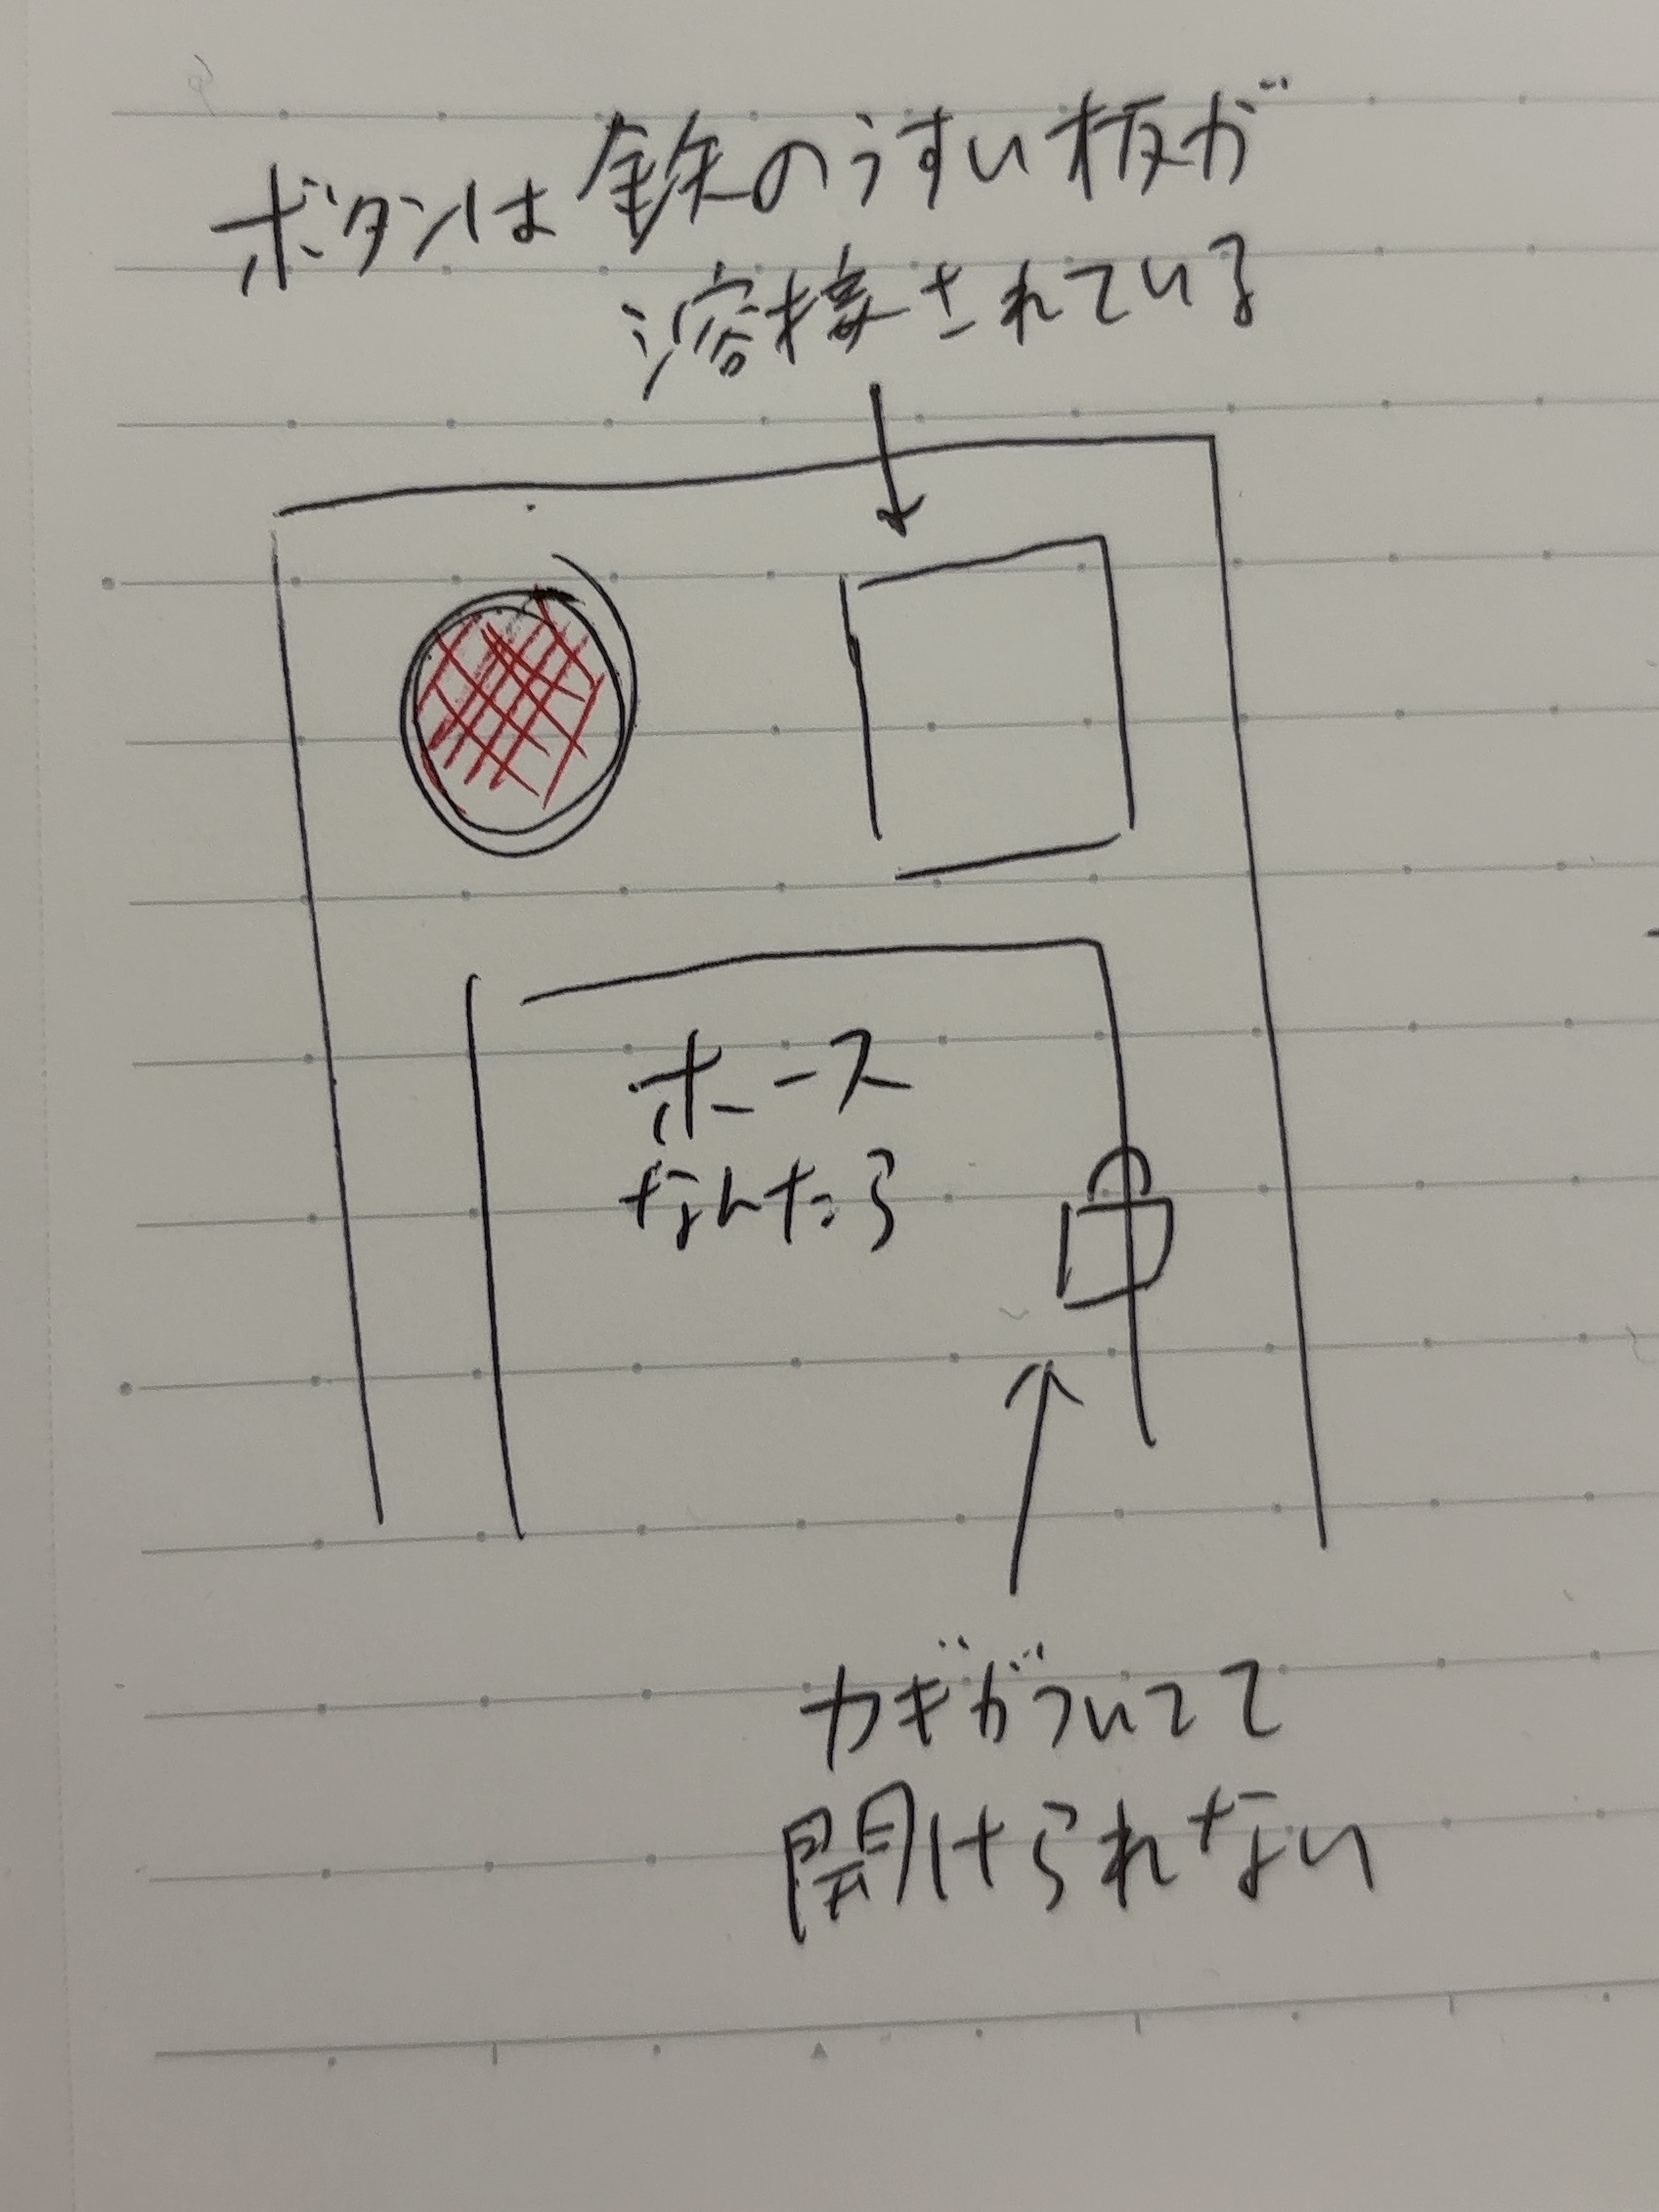 ボタンは鉄のうすい板が
溶接されている
ホース
なんたら
カギがついてて
開けられない